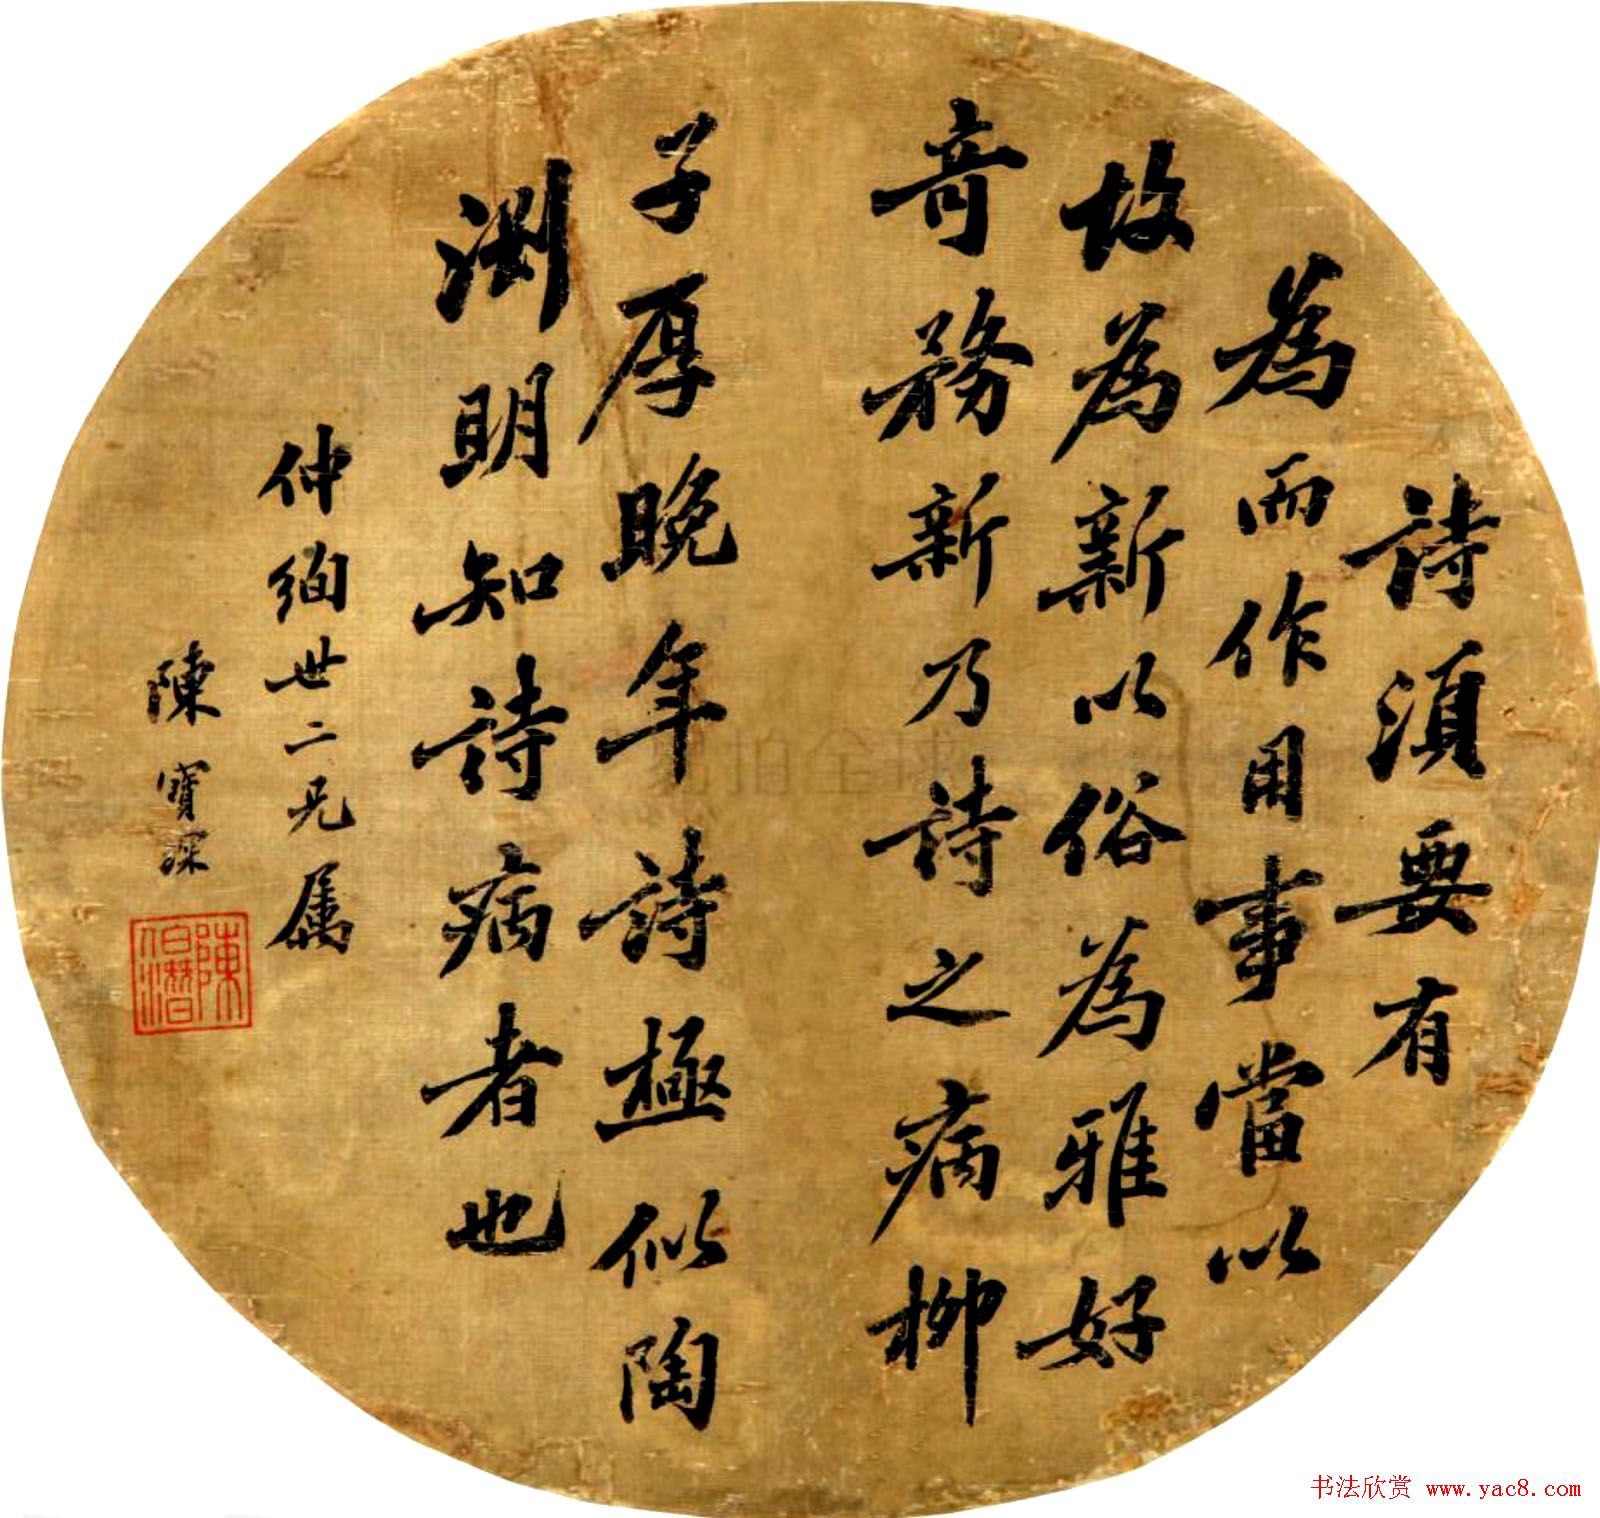 詩須要有
為而作用事當以
故為新以俗為雅好
奇務新乃詩之病柳
子厚晚年詩極似陶
淵明知詩病者也
仲絢世二兄属
陳寶琛
陳伯潛
书法欣赏 www.yac8.com